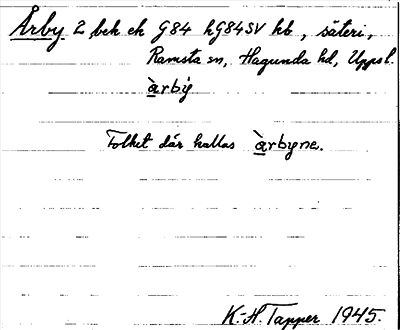 Årby 2 bek ek G84 hG84SV kb, säteri,
Ramsta sn, Hagunda hd, Uppsl.
àrbÿ
Folket där kallas àrbyne.
K.-H. Tapper 1945.